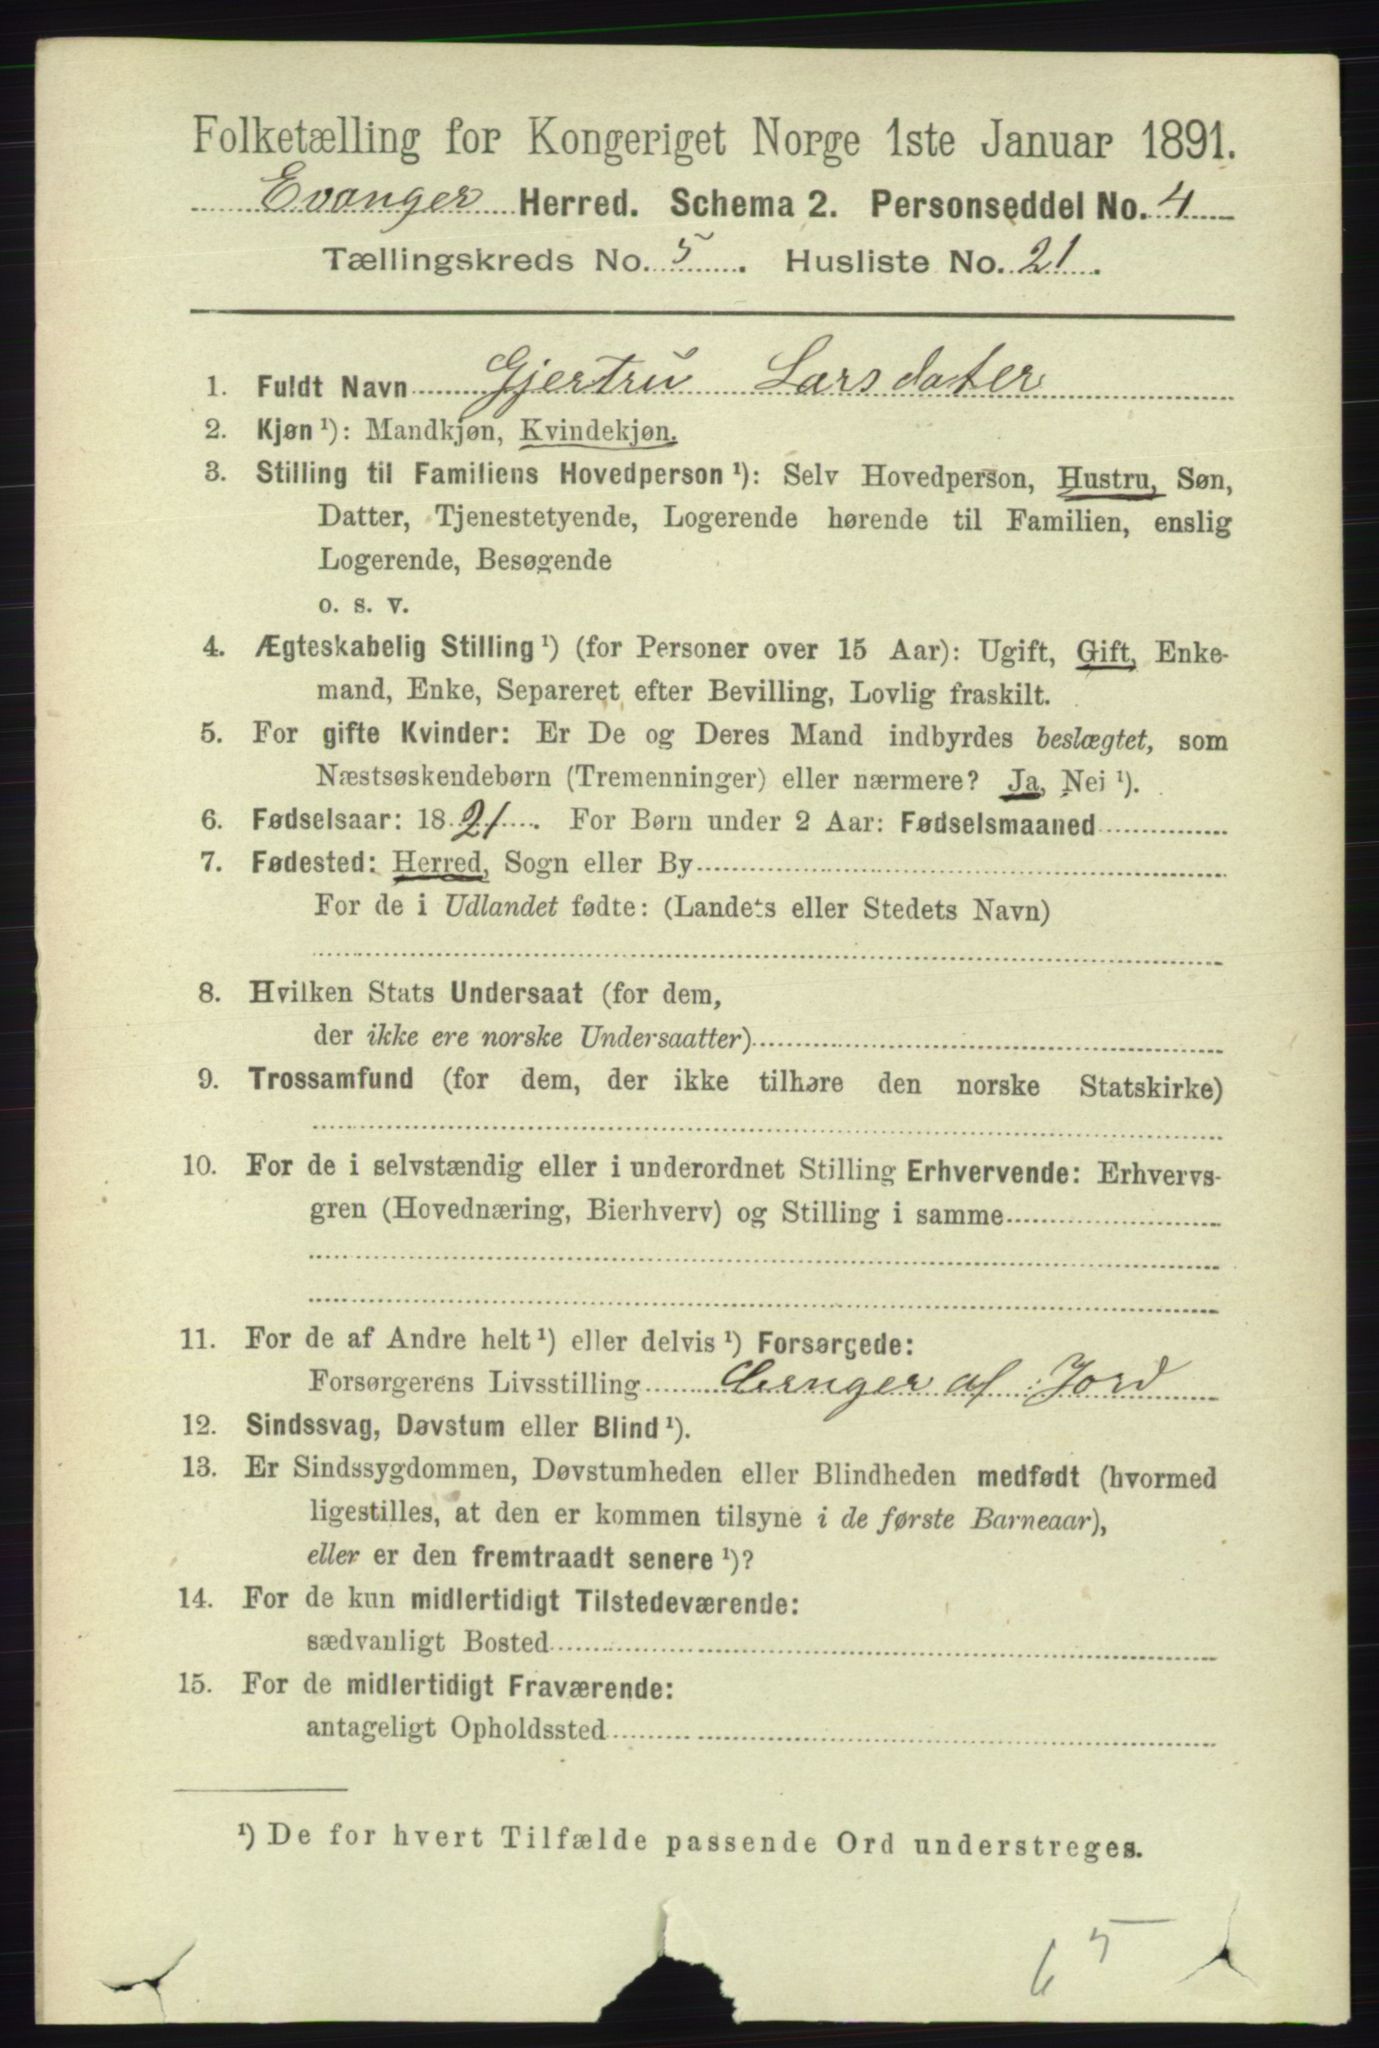 Folketælling for Kongeriget Norge 1ste Januar 1891.
Evanger Herred. Schema 2. Personseddel No. 4
Tællingskreds No. 5. Husliste No. 21.
1. Fuldt Navn Gjertru Larsdater
2. Kjøn ¹): Mandkjøn, Kvindekjøn.
3. Stilling til Familiens Hovedperson ¹): Selv Hovedperson, Hustru, Søn,
Datter, Tjenestetyende, Logerende hørende til Familien, enslig
Logerende, Besøgende
o. s. v.
4. Ægteskabelig Stilling ¹) (for Personer over 15 Aar): Ugift, Gift, Enke-
mand, Enke, Separeret efter Bevilling, Lovlig fraskilt.
5. For gifte Kvinder: Er De og Deres Mand indbyrdes beslægtet, som
Næstsøskendebørn (Tremenninger) eller nærmere? Ja, Nei ¹).
6. Fødselsaar: 1821. For Børn under 2 Aar: Fødselsmaaned
7. Fødested: Herred, Sogn eller By
For de i Udlandet fødte: (Landets eller Stedets Navn)
8. Hvilken Stats Undersaat (for dem,
der ikke ere norske Undersaatter)
9. Trossamfund (for dem, der ikke tilhøre den norske Statskirke)
10. For de i selvstændig eller i underordnet Stilling Erhvervende: Erhvervs-
gren (Hovednæring, Bierhverv) og Stilling i samme
11. For de af Andre helt ¹) eller delvis ¹) Forsørgede:
Forsørgerens Livsstilling af Jord
12. Sindssvag, Døvstum eller Blind ¹).
13. Er Sindssygdommen, Døvstumheden eller Blindheden medfødt (hvormed
ligestilles, at den er kommen tilsyne i de første Barneaar),
eller er den fremtraadt senere ¹)?
14. For de kun midlertidigt Tilstedeværende:
sædvanligt Bosted
15. For de midlertidigt Fraværende:
antageligt Opholdssted
¹) De for hvert Tilfælde passende Ord understreges.
65